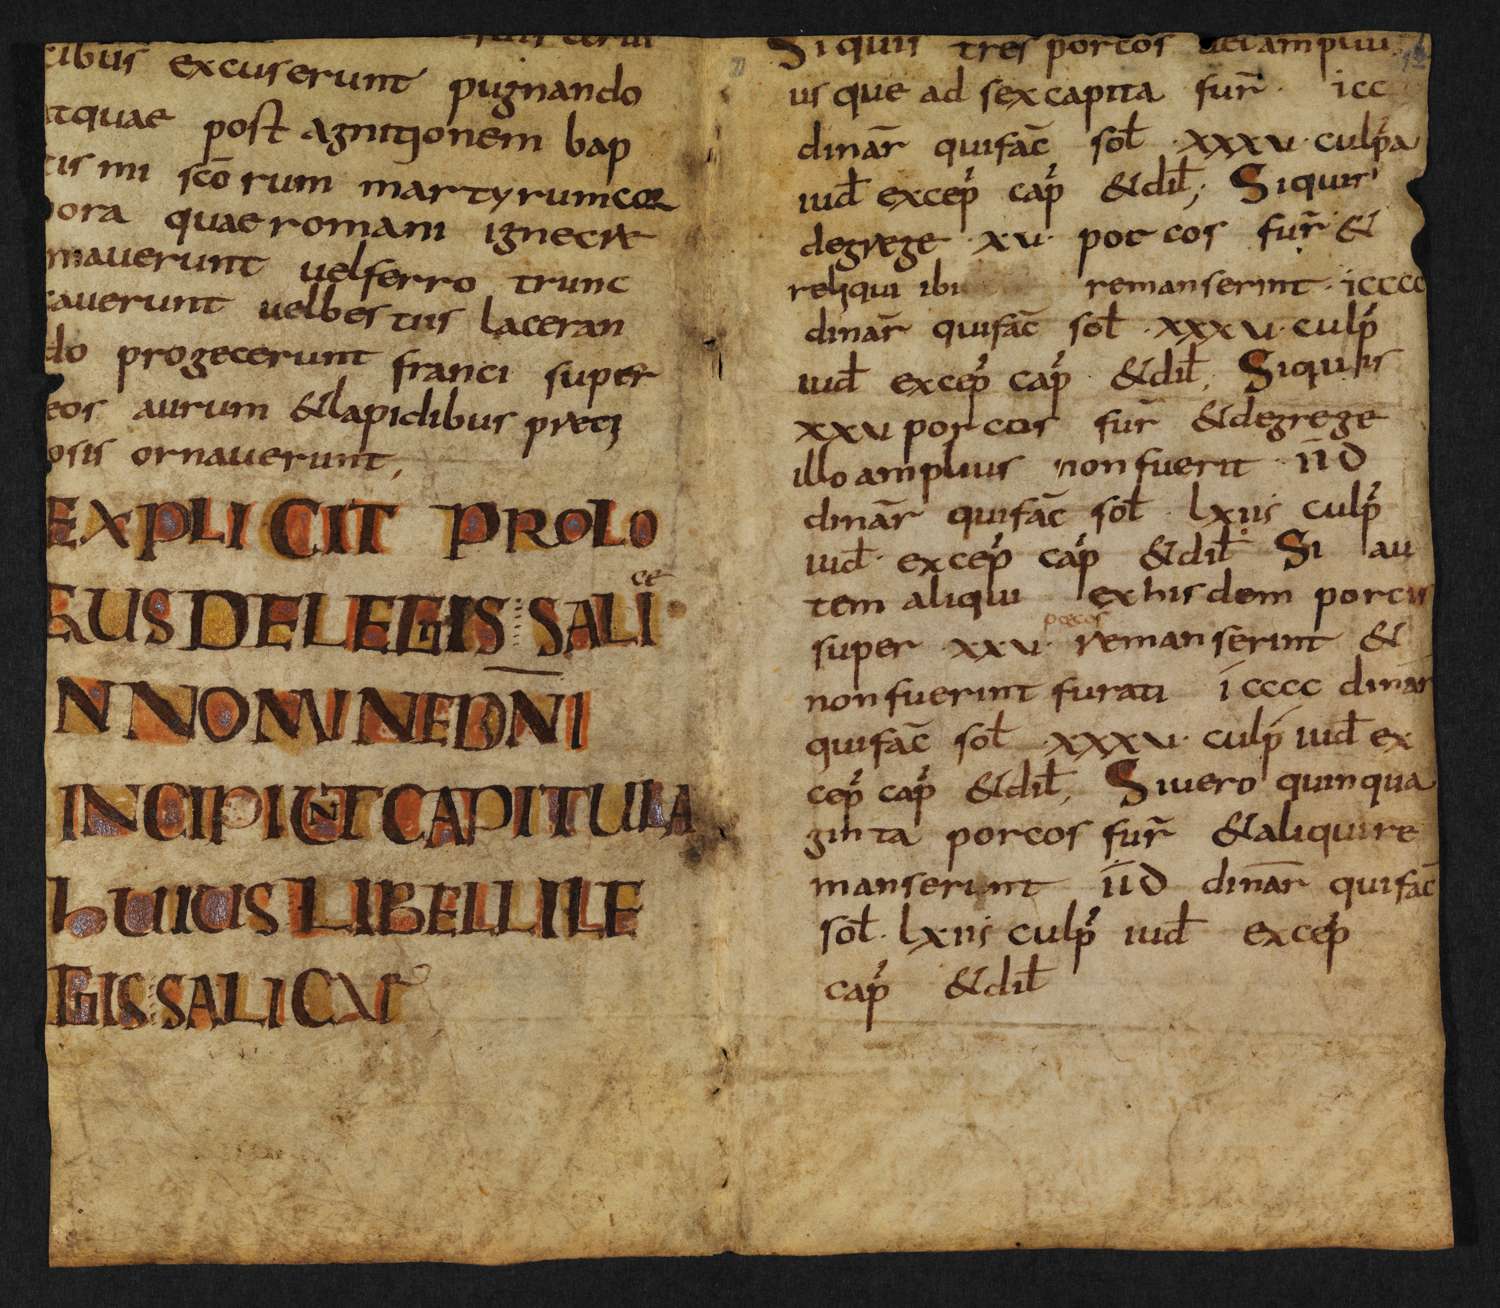 cibus excuserunt pugnando
atquae post agnitionem bap
tis mi sc̄o rum martyrum cor
pora quae romani igne cræ
mauerunt uel ferro trunc
cauerunt uel bes tiis laceran
do progecerunt franci super
eos aurum &lapidibus præti
osis ornauerunt,
EXPLICIT PROLO
GUS DE LEGIS SALI ce
N NOMINE DN̄I
INCIPIUNT CAPITULA
hUIUS LIBELLI LE
GIS SALICAE
Si quis tres porcos uel amplius
us que ad sex capita fur̄ · icc
dinar̄ qui fac̄ sol · xxxv · culp̄a
iud excep̄ cap̄ &dil; Si quis
de grege · xv · porcos fur̄ &
reliqui ibi remanserint · icccc
dinar̄ qui fac̄ sol · xxxv · culp̄
iud excep̄ cap̄ &dil; Si quis
xxv porcos fur̄ &degrege
illo amplius non fuerit · īīD
dinar̄ qui fac̄ sol · lxiis culp̄
iud · excep̄ cap̄ &dil Si au
tem aliqui exhisdem porcis
super · xxv · porcos remanserint &
non fuerint furati icccc dinar̄
qui fac̄ sol · xxxv · culp̄ iud ex
cep̄ cap̄ &dil; Si uero quinqua
gin ta porcos fur̄ &aliqui re
manserint īīD dinar̄ qui fac̄
sol · lxiis culp̄ iud excep̄
cap̄ &dil